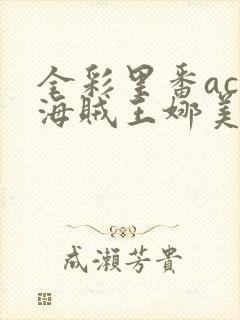 全彩里番ac
海贼王娜美
成瀬芳貴